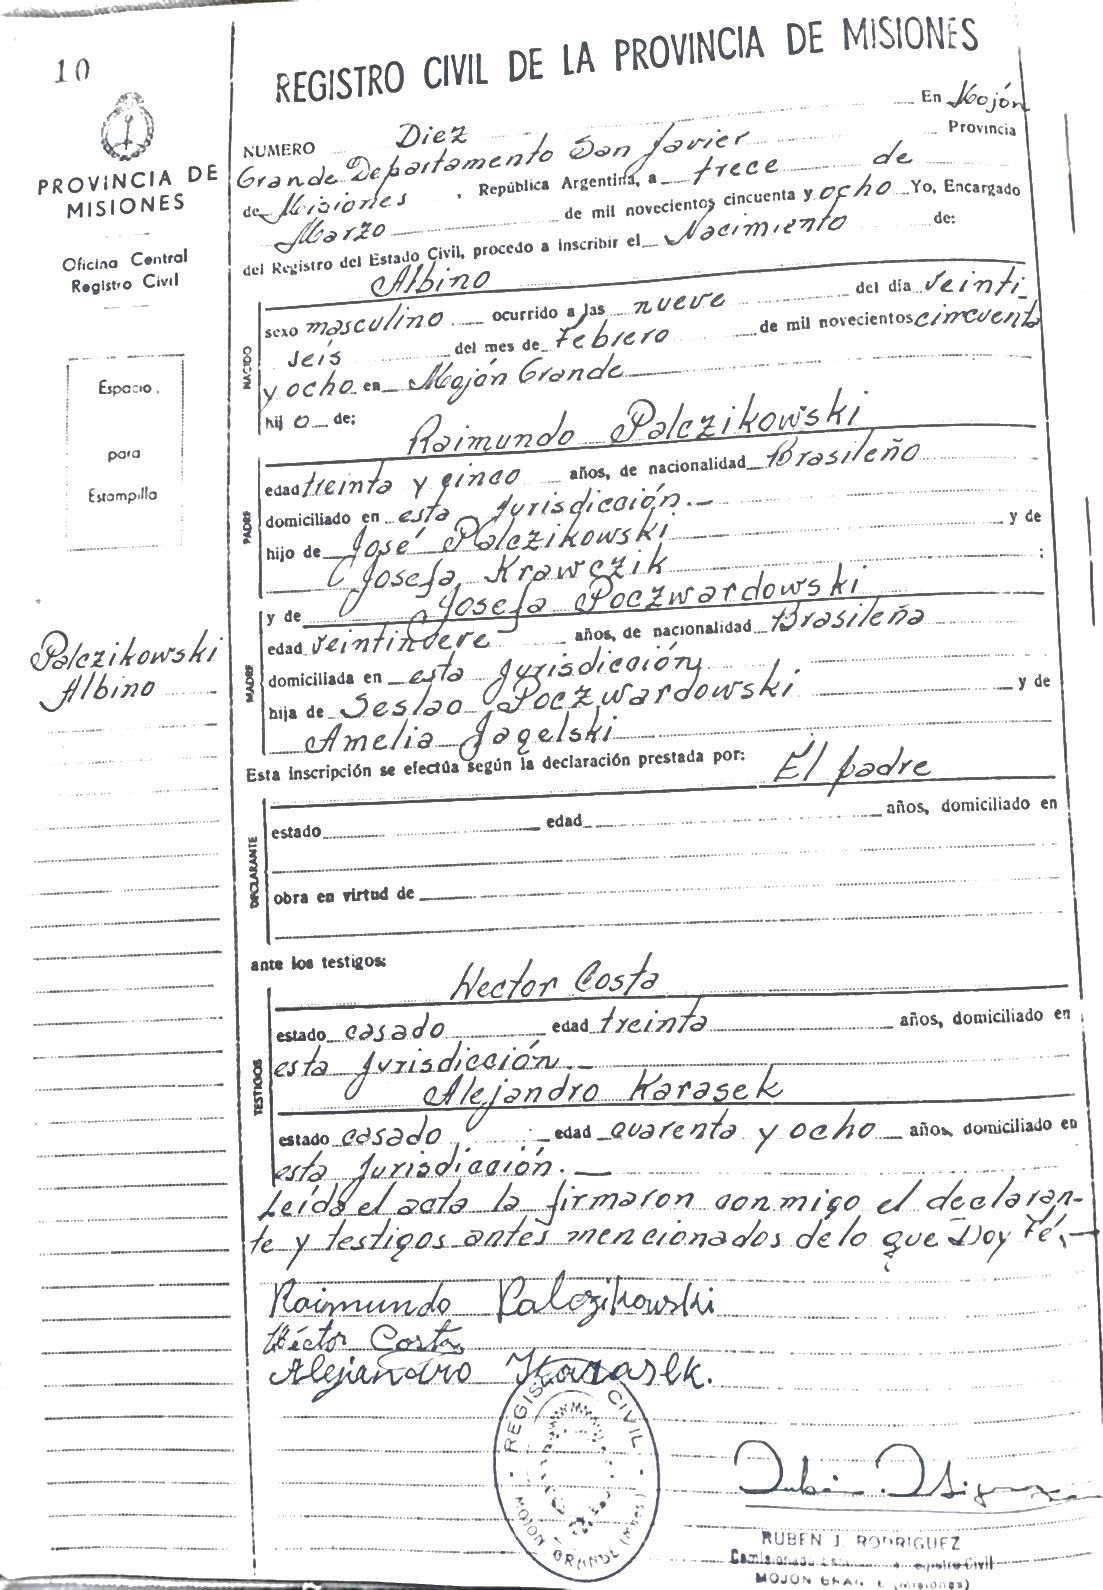 10
PROVINCIA DE
MISIONES
Oficina Central
Registro Civil
Espacio
para
Estampilla
Palczikowski
Albino
REGISTRO CIVIL DE LA PROVINCIA DE MISIONES
NUMERO Diez En Mojón
Grande Departamento San Javier Provincia
de Misiones, República Argentina, a trece de
Marzo de mil novecientos cincuenta y ocho Yo, Encargado
del Registro del Estado Civil, procedo a inscribir el Nacimiento de:
Albino
NACIDO
sexo masculino ocurrido a las nueve del día veinti-
seis del mes de Febrero de mil novecientos cincuenta
y ocho en Mojón Grande
hijo de:
Raimundo Palczikowski
PADRE
edad treinta y cinco años, de nacionalidad Brasileño
domiciliado en esta Jurisdicción.-
hijo de José Palczikowski y de
Josefa Krawczik :
y de Josefa Poczwardowski
MADRE
edad veintinueve años, de nacionalidad Brasileña
domiciliada en esta Jurisdicción
hija de Seslao Poczwardowski y de
Amelia Jagelski
Esta inscripción se efectúa según la declaración prestada por: El padre
DECLARANTE
estado edad años, domiciliado en
obra en virtud de
ante los testigos:
Hector Costa
TESTIGOS
estado casado edad treinta años, domiciliado en
esta Jurisdicción.-
Alejandro Karasek
estado casado, edad cuarenta y ocho años, domiciliado en
esta Jurisdicción.-
Leída el acta la firmaron conmigo el declaran-
te y testigos antes mencionados de lo que Doy Fé.-
Raimundo Palczikowski
Héctor Costa
Alejandro Karasek.
REGISTRO CIVIL
MOJON GRANDE (Mnes.)
RUBEN J. RODRIGUEZ
Registro Civil
MOJON GRANDE (Misiones)